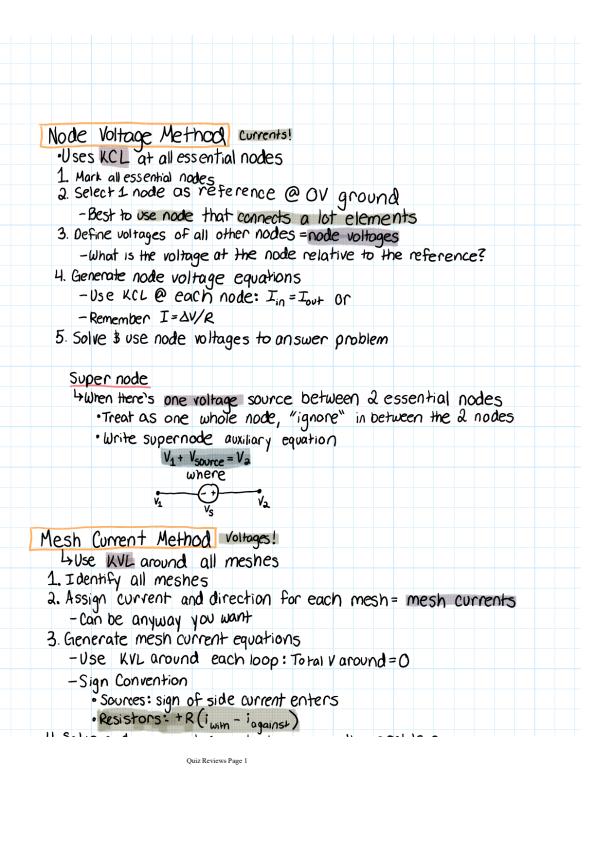 Node Voltage Method Currents!
•Uses KCL at all essential nodes
1. Mark all essential nodes
2. Select 1 node as reference @ 0V ground
-Best to use node that connects a lot elements
3. Define voltages of all other nodes = node voltages
-What is the voltage at the node relative to the reference?
4. Generate node voltage equations
-Use KCL @ each node: Iin = Iout or
-Remember I = ΔV/R
5. Solve & use node voltages to answer problem
Super node
↳When there's one voltage source between 2 essential nodes
•Treat as one whole node, "ignore" in between the 2 nodes
•Write supernode auxiliary equation
V1 + Vsource = V2
where
- +
V1 Vs V2
Mesh Current Method Voltages!
↳Use KVL around all meshes
1. Identify all meshes
2. Assign current and direction for each mesh = mesh currents
-Can be anyway you want
3. Generate mesh current equations
-Use KVL around each loop: Total V around = 0
-Sign Convention
•Sources: sign of side current enters
•Resistors: +R(iwith - iagainst)
Quiz Reviews Page 1